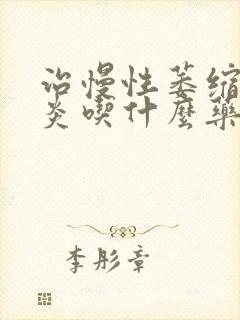 治慢性萎缩
炎喫什麼藥
李彤章